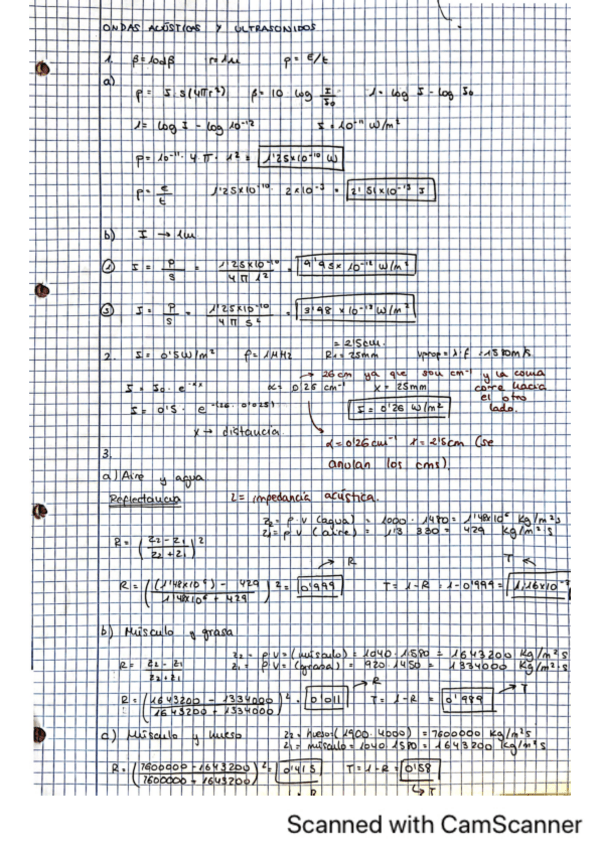 ONDAS ACÚSTICAS Y ULTRASONIDOS
1. β = 10dβ r = 1m P = E/t
a)
P = I · S (4πr²) β = 10 log I/I₀ 1 = log I - log I₀
1 = log I - log 10⁻¹² I = 10⁻¹¹ W/m²
P = 10⁻¹¹ · 4 · π · 1² = 1'25x10⁻¹⁰ W
P = E/t 1'25x10⁻¹⁰ · 2x10⁻³ = 2'51x10⁻¹³ J
b) I → 1m
① I = P/S = 1'25x10⁻¹⁰/4π 1² = 9'95x10⁻¹² W/m²
⑤ I = P/S = 1'25x10⁻¹⁰/4π 5² = 3'98x10⁻¹³ W/m²
= 2'5cm.
2. I = 0'5W/m² f = 1MHz R₁ = 25mm vprop = λ·f = 1510m/s
→ 26 cm ya que son cm⁻¹ y la coma
I = I₀ · e^-αx α = 0'26 cm⁻¹ x = 25mm corre hacia
el otro
I = 0'5 · e^(-26 · 0'025) I = 0'26 W/m² lado.
x → distancia
α = 0'26 cm⁻¹ x = 2'5cm (se
3.
anulan los cms).
a) Aire y agua
Reflectancia Z = impedancia acústica.
Z₂ = ρ · V (agua) = 1000 · 1480 = 1'48x10⁶ Kg/m²s
Z₁ = ρ V (aire) = 1'3 330 = 429 Kg/m²s
R = (Z₂ - Z₁/Z₂ + Z₁)²
→ R T ←
R = ((1'48x10⁶) - 429/1'48x10⁶ + 429)² = 0'999 T = 1 - R = 1 - 0'999 = 1,16x10⁻³
b) Músculo y grasa
Z₂ = ρ V = (músculo) = 1040 · 1580 = 1643200 Kg/m²s
R = Z₂ - Z₁/Z₂ + Z₁ Z₁ = ρ V = (grasa) = 920 1450 = 1334000 Kg/m²s
→ R → T
R = (1643200 - 1334000/1643200 + 1334000)² = 0'011 T = 1 - R = 0'989
c) Músculo y hueso Z₂ = hueso = (1900 · 4000) = 7600000 Kg/m²s
Z₁ = músculo = 1040 1580 = 1643200 Kg/m²s
R = (7600000 - 1643200/7600000 + 1643200)² = 0'415 T = 1 - R = 0'58
↳ T
Scanned with CamScanner